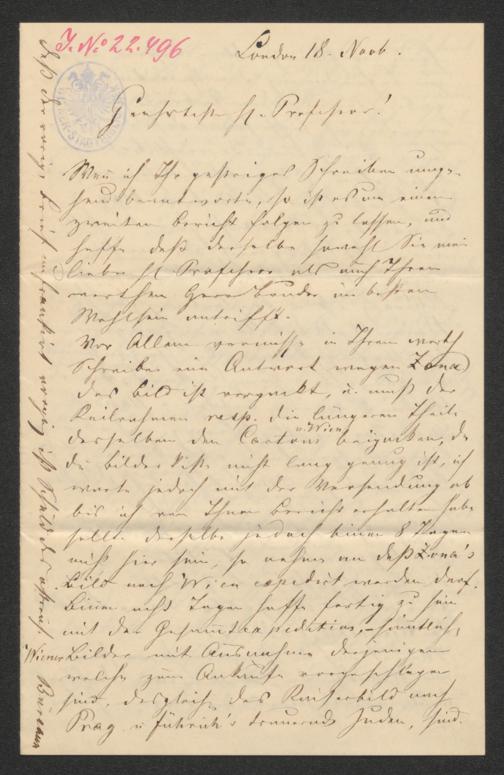 J. No 22.496
London 18. Novb.
Geehrtester H. Professor!
Wenn ich Ihr gestriges Schreiben umge-
hend beantworte, so ist es um einen
zweiten Bericht folgen zu lassen, und
hoffe daß derselbe sowohl Sie mein
lieber H. Professor als auch Ihren
werthen Herrn Bruder im besten
Wohlsein antrifft.
Vor Allem vermisse in Ihrem werth
Schreiben eine Antwort wegen Zona
das Bild ist verpackt, u. muß der
Keilrahmen resp. die längeren Theile
desselben den Cartons v. Wien beipacken, da
die Bilder Kiste nicht lang genug ist, ich
warte jedoch mit der Versendung ab
bis ich von Ihnen Bericht erhalten habe
sollte derselbe jedoch binnen 8 Tagen
nicht hier sein, so nehme an daß Zona's
Bild nach Wien expedirt werden darf.
Binnen acht Tagen hoffe fertig zu sein
mit der Gesammtexpedition, sämmtlich,
Wiener Bilder mit Ausnahme derjenigen
welche zum Ankaufe vorgeschlagen
sind desgleich. das Kaiserbild nach
Prag u Führich's trauernde Juden, sind